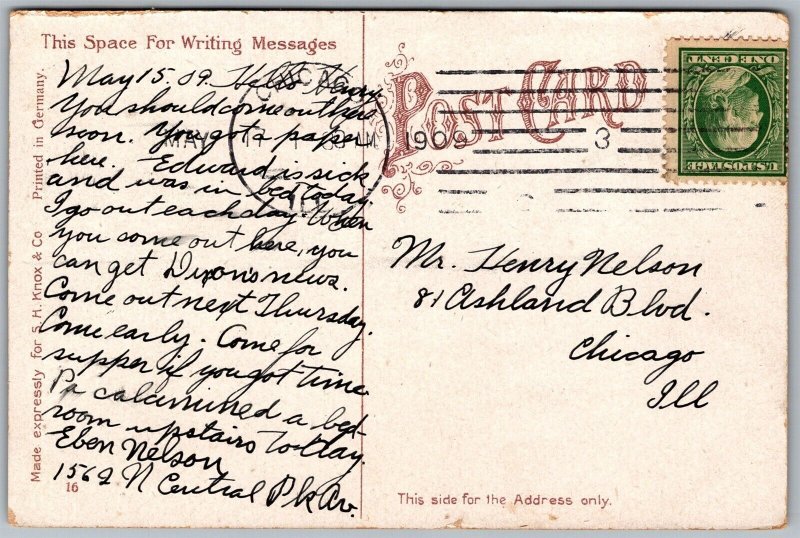 This Space For Writing Messages
May 15. 09. Hello Henry
You should come out here
soon. You got a paper
here. Edward is sick
and was in bed today.
I go out each day. When
you come out here, you
can get news.
Come out next Thursday.
Come early. Come for
supper if you got time
Pa calamined a bed
room upstairs to-day.
Eben Nelson
1562 N Central Pk Av.
16
Made expressly for S. H. Knox & Co Printed in Germany.
POST CARD
CHICAGO
MAY 17
1909
3
ONE CENT
U.S. POSTAGE
Mr. Henry Nelson
81 Ashland Blvd.
Chicago
Ill
This side for the Address only.